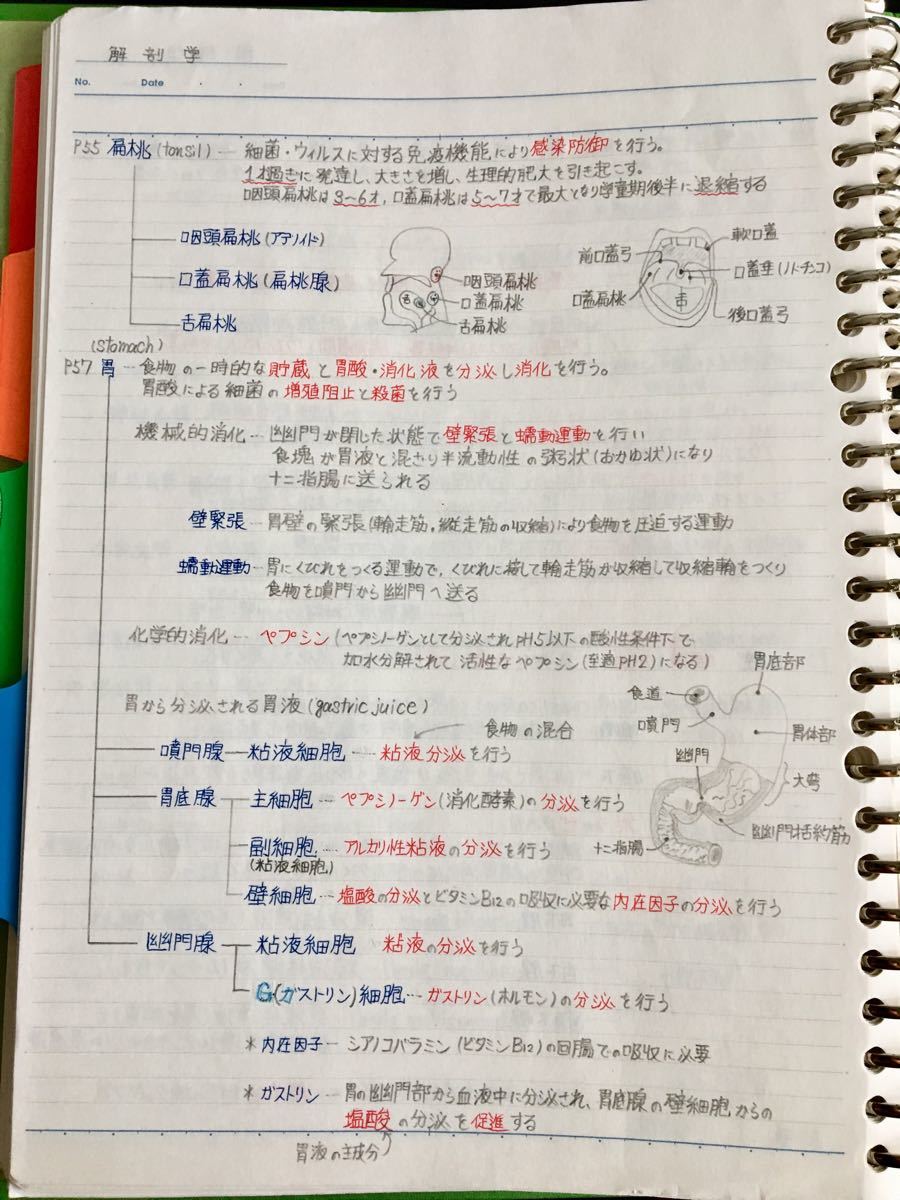 解剖学
No. Date
P55 扁桃(tonsil) ― 細菌・ウィルスに対する免疫機能により感染防御を行う。
1才過ぎに発達し、大きさを増し、生理的肥大を引き起こす。
咽頭扁桃は3〜6才、口蓋扁桃は5〜7才で最大となり学童期後半に退縮する
咽頭扁桃(アデノイド)
口蓋扁桃(扁桃腺)
舌扁桃
咽頭扁桃
口蓋扁桃
舌扁桃
前口蓋弓
軟口蓋
口蓋垂(ノドチンコ)
口蓋扁桃
舌
後口蓋弓
(stomach)
P57 胃 … 食物の一時的な貯蔵と胃酸・消化液を分泌し消化を行う。
胃酸による細菌の増殖阻止と殺菌を行う
機械的消化 … 幽門が閉じた状態で壁緊張と蠕動運動を行い
食塊が胃液と混ざり半流動性の粥状(おかゆ状)になり
十二指腸に送られる
壁緊張 ― 胃壁の緊張(輪走筋、縦走筋の収縮)により食物を圧迫する運動
蠕動運動 … 胃にくびれをつくる運動で、くびれに接して輪走筋が収縮して収縮輪をつくり
食物を噴門から幽門へ送る
化学的消化 … ペプシン(ペプシノーゲンとして分泌されPH5以下の酸性条件下で
加水分解されて活性なペプシン(至適PH2)になる)
胃から分泌される胃液(gastric juice)
食物の混合
噴門腺 ― 粘液細胞 … 粘液分泌を行う
胃底腺 ― 主細胞 … ペプシノーゲン(消化酵素)の分泌を行う
副細胞 … アルカリ性粘液の分泌を行う
(粘液細胞)
壁細胞 … 塩酸の分泌とビタミンB12の吸収に必要な内在因子の分泌を行う
幽門腺 ― 粘液細胞 粘液の分泌を行う
G(ガストリン)細胞 … ガストリン(ホルモン)の分泌を行う
胃底部
食道
噴門
胃体部
幽門
大弯
幽門括約筋
十二指腸
* 内在因子 ― シアノコバラミン(ビタミンB12)の回腸での吸収に必要
* ガストリン ― 胃の幽門部から血液中に分泌され、胃底腺の壁細胞からの
塩酸の分泌を促進する
胃液の主成分